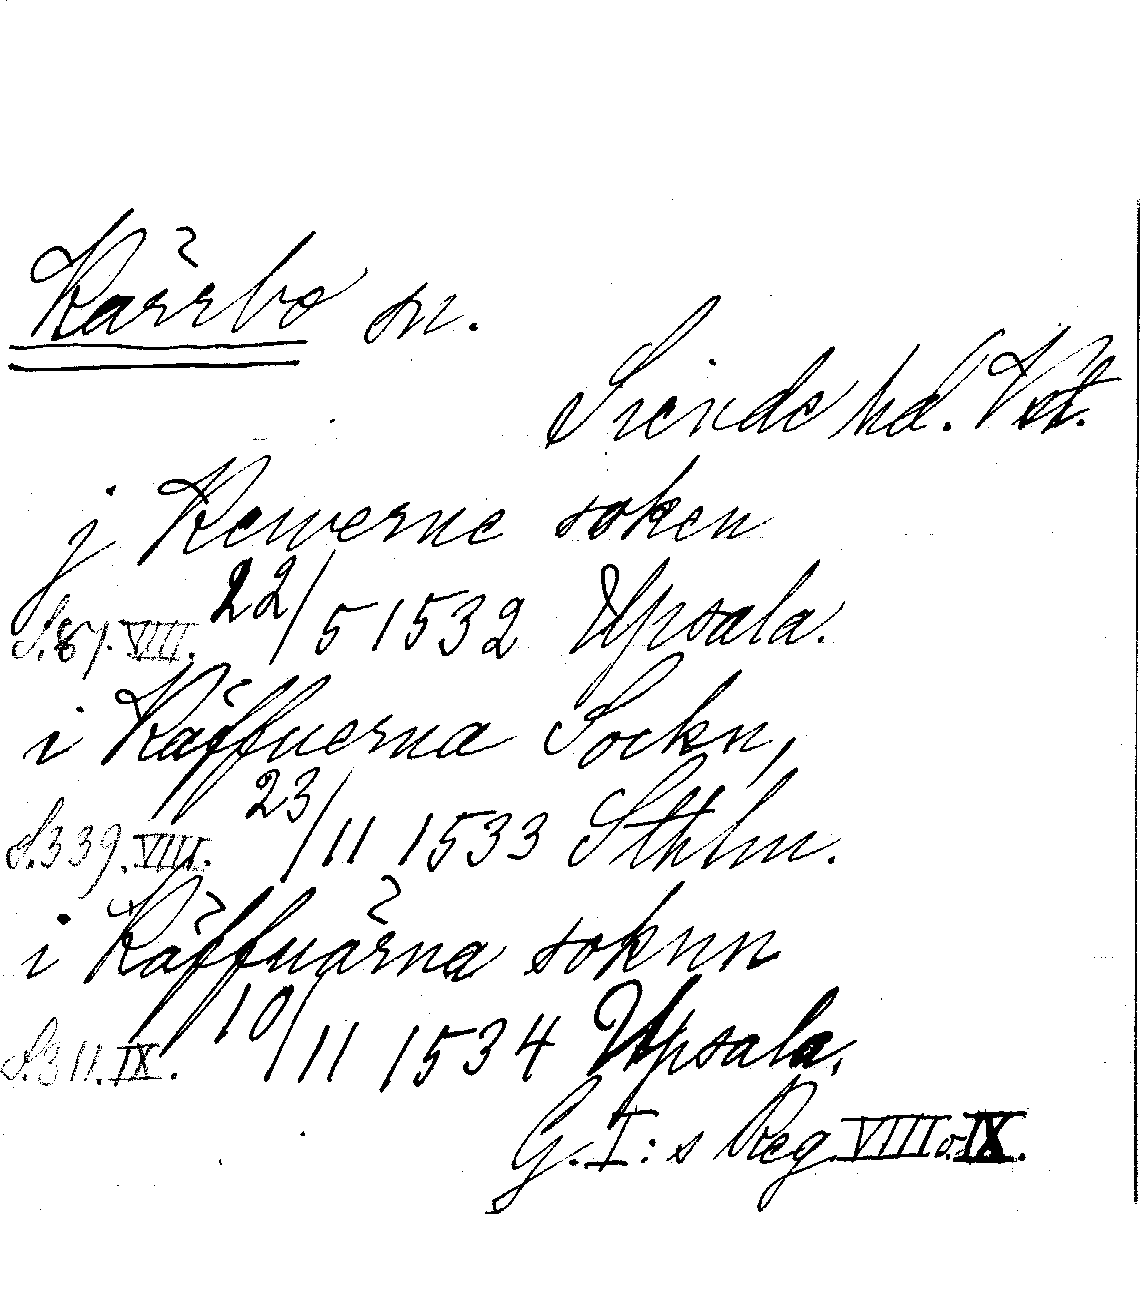 Kärrbo sn.
Siende hd. Vstm.
j Kewerne soken
S. 87. VIII. 22/5 1532 Upsala.
i Käffuerna Sockn,
S. 339. VIII. 23/11 1533 Sthlm.
i Käffuärna soknn
S. 311. IX. 10/11 1534 Upsala.
G. I:s Reg. VIII o. IX.